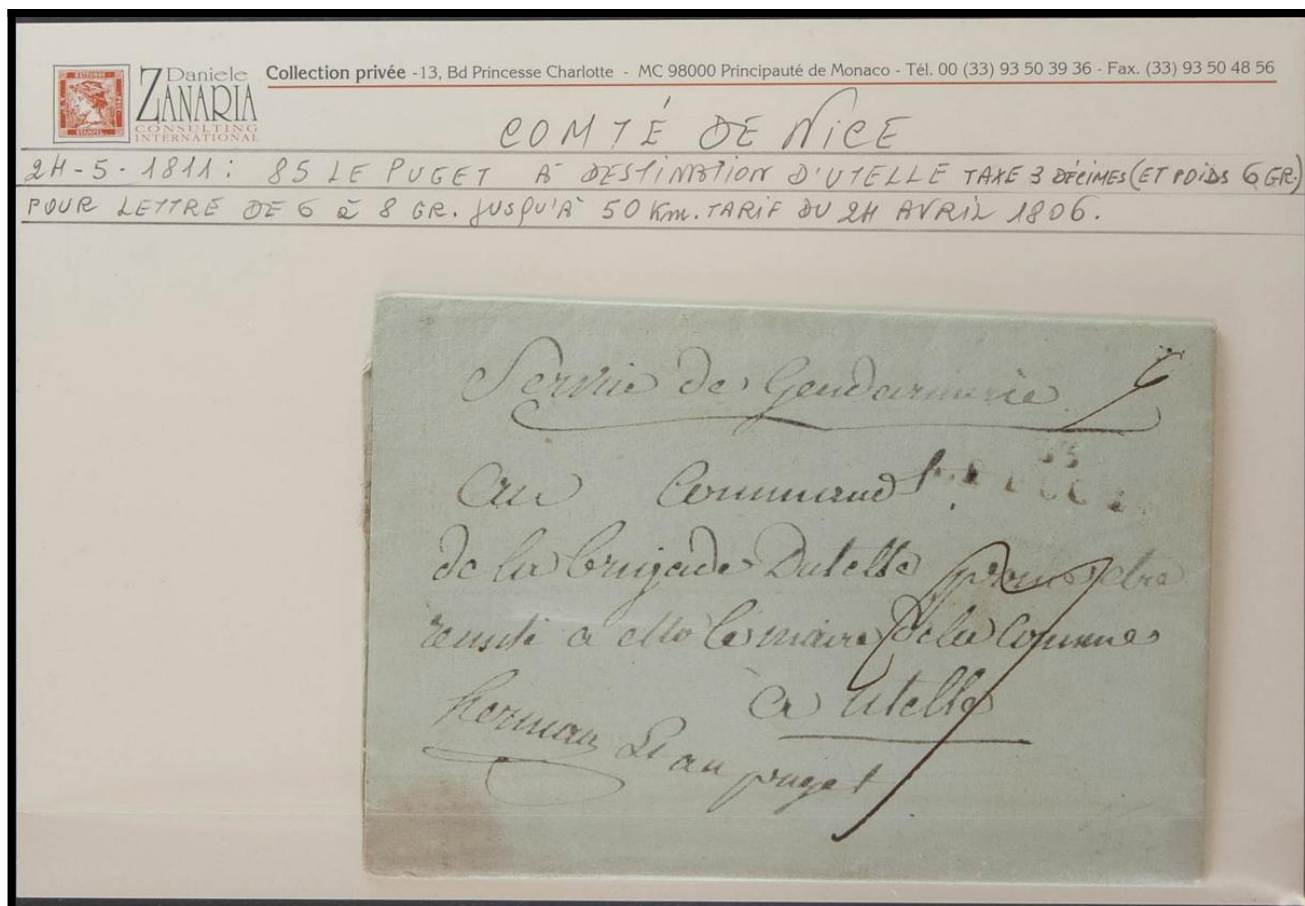 Daniele
ZANARIA
CONSULTING
INTERNATIONAL
Collection privée - 13, Bd Princesse Charlotte - MC 98000 Principauté de Monaco - Tél. 00 (33) 93 50 39 36 - Fax. (33) 93 50 48 56
COMTÉ DE NICE
24-5-1811: 85 LE PUGET A DESTINATION D'UTELLE TAXE 3 DÉCIMES (ET POIDS 6 GR.)
POUR LETTRE DE 6 à 8 GR. JUSQU'A 50 Km. TARIF DU 24 AVRIL 1806.
Service de Gendarmerie
6
85
au Command
de la brigade Dutelle pour etre
remise a le maire de la Comune
a utelle
herman Lt au puget